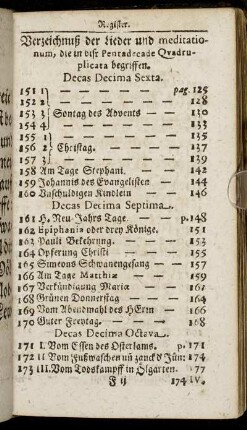 Register.
Verzeichnuß der Lieder und meditatio-
num, die in diser Pentadecade Qvadru-
plicata begriffen.
Decas Decima Sexta.
151 1 — — — — — pag. 125
152 2 — — — — — 128
153 3 Sontag des Advents — — 130
154 4 — — — — — 133
155 1 — — — — — 135
156 2 Christag. — — — 137
157 3 — — — — — 139
158 Am Tage Stephani. — — 142
159 Johannis des Evangelisten — 144
160 Unschuldigen Kindlein — 146
Decas Decima Septima.
161 H. Neu-Jahrs Tage. — — p. 148
162 Epiphania oder drey Könige. 151
163 Pauli Bekehrung. — — 153
164 Opferung Christi — — 155
165 Simeons Schwanengesang — 157
166 Am Tage Matthiæ — 159
167 Verkündigung Mariæ — 161
168 Grünen Donnerstag — — 164
169 Vom Abendmahl des HErrn — 166
170 Guter Freytag. — — — 168
Decas Decima Octava.
171 I. Vom Essen des Osterlams. p. 171
172 II Vom Fußwaschen uñ zanck d' Jün: 174
173 III. Vom Todskampff in Ölgarten. 77
F ij 174 IV.